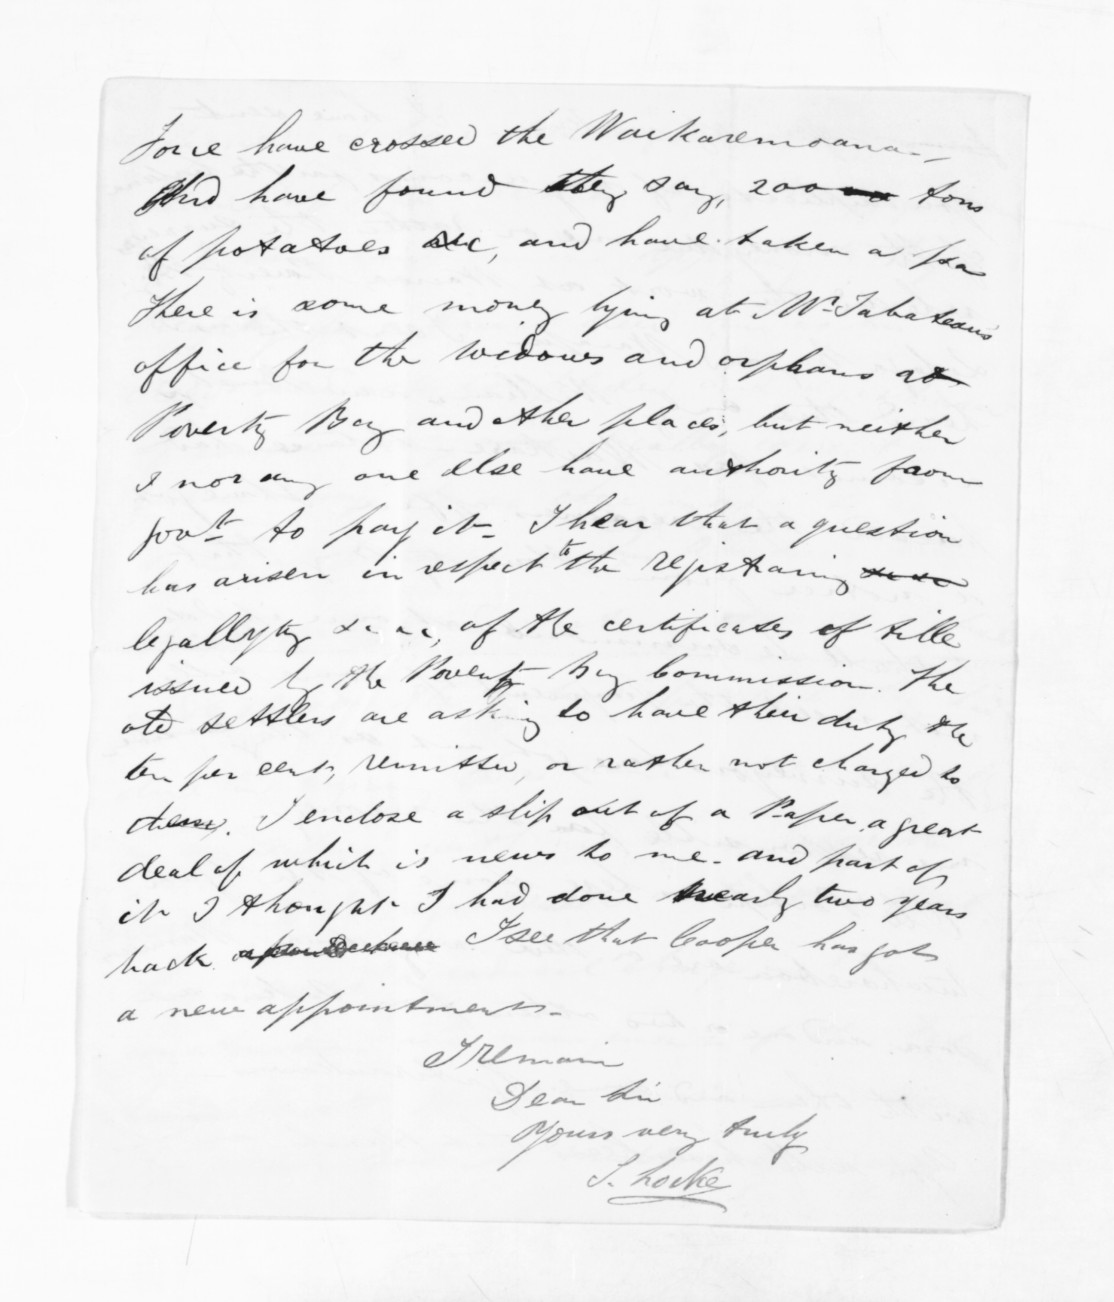 Force have crossed the Waikaremoana -,
And have found they say, 200 tons
of potatoes &c, and have taken a pa
There is some money lying at Mr Tabateau's
office for the widows and orphans at
Poverty Bay and other places, but neither
I nor any one else have authority from
govt to pay it - I hear that a question
has arisen in respect to the registering
legallyty &c &c, of the certificates of title
issued by the Poverty Bay Commission. The
old settlers are asking to have their duty the
ten per cent, remitted, or rather not charged to
them. I enclose a slip out of a Paper, a great
deal of which is news to me - and part of
it I thought I had done nearly two years
back I see that Cooper has got
a new appointment -
I remain
Dear Sir
Yours very truly
S. Locke